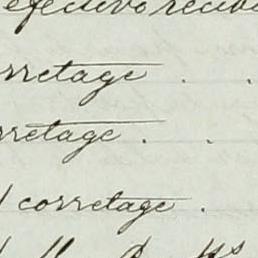 efectivo recib
rretage . .
rretage . .
corretage .